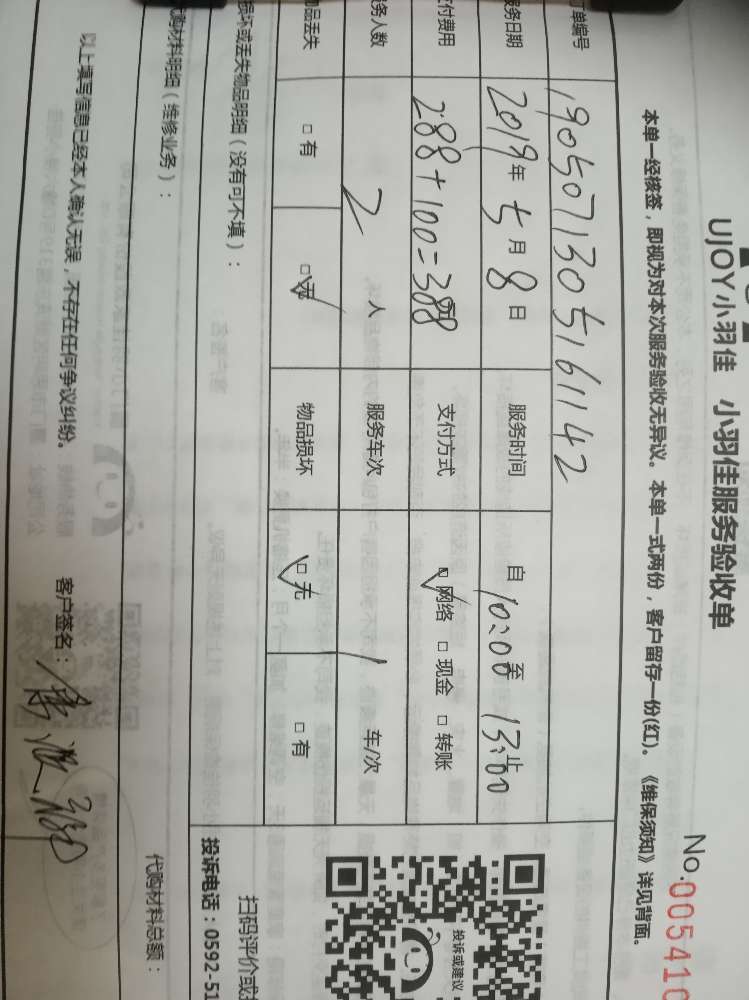 UJOY小羽佳 小羽佳服务验收单
No.005410
本单一经核签，即视为对本次服务验收无异议。本单一式两份，客户留存一份(红)。《维保须知》详见背面。
订单编号 1905071305161142
服务日期 2019年5月8日 服务时间 自10:00至13:00止
支付费用 288+100=388 元 支付方式 □网络 □现金 □转账
服务人数 2 人 服务车次 1 车/次
物品丢失 □有 □无 物品损坏 □无 □有
损坏或丢失物品明细（没有可不填）：
投诉或建议
扫码评价或
投诉电话：0592-51
代购材料明细（维修业务）： 代购材料总额：
以上填写信息已经本人确认无误，不存在任何争议纠纷。 客户签名：